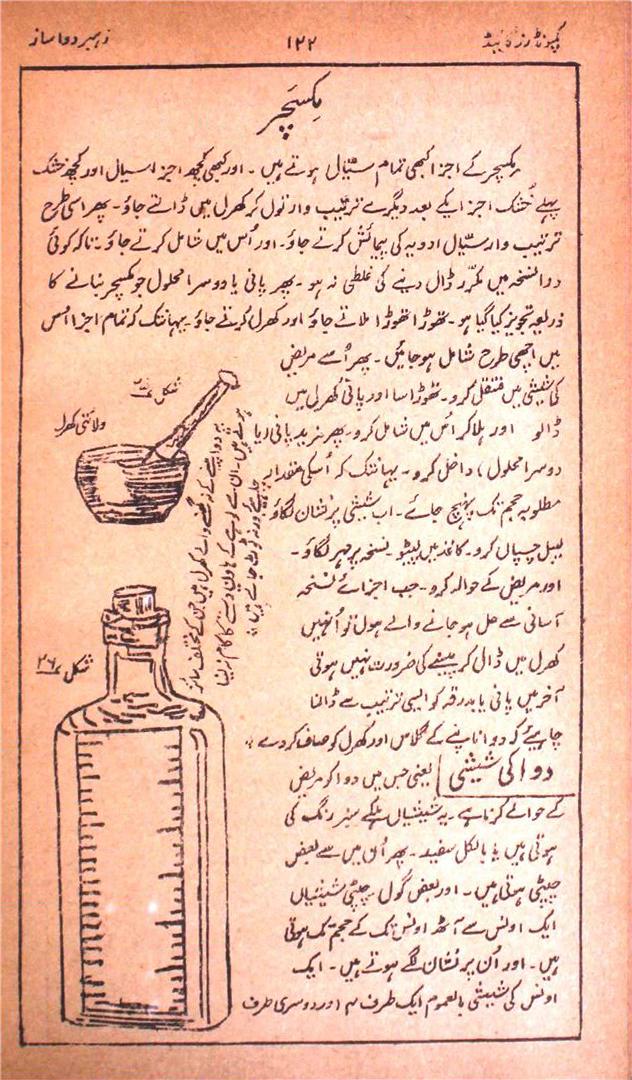 کمپونڈرز گائیڈ
۱۲۲
رہبر دواساز
مکسچَر
مکسچر کے اجزا کبھی تمام سیّال ہوتے ہیں ۔ اور کبھی کچھ اجزا سیال اور کچھ خشک
پہلے خُشک اجزا یکے بعد دیگرے ترتیب وار تول کر کھرل میں ڈالتے جاؤ ۔ پھر اسی طرح
ترتیب وار سیّال ادویہ کی پیمائش کرتے جاؤ ۔ اور اُس میں شامل کرتے جاؤ ۔ تاکہ کوئی
دوا نسخہ میں مکرّر ڈال دینے کی غلطی نہ ہو ۔ پھر پانی یا دوسرا محلول جو مکسچر بنانے کا
ذریعہ تجویز کیا گیا ہو ۔ تھوڑا تھوڑا ملاتے جاؤ اور کھرل کرتے جاؤ ۔ یہانتک کہ تمام اجزا اُس
میں اچھی طرح شامل ہو جائیں ۔ پھر اُسے مریض
کی شیشی میں منتقل کرو ۔ تھوڑا سا اور پانی کھرل میں
ڈالو اور ہلا کر اُس میں شامل کرو ۔ پھر مزید پانی (یا
دوسرا محلول) داخل کرو ۔ یہانتک کہ اُسکی مقدار
مطلوبہ حجم تک پہنچ جائے ۔ اب شیشی پر نشان لگاؤ
لیبل چسپاں کرو ۔ کاغذ میں لپیٹو ۔ نسخہ پر مہر لگاؤ ۔
اور مریض کے حوالہ کرو ۔ جب اجزائے نسخہ
آسانی سے حل ہو جانے والے ہوں تو اُنہیں
کھرل میں ڈال کر پیسنے کی ضرورت نہیں ہوتی
آخر میں پانی یا بدرقہ کو ایسی ترتیب سے ڈالنا
چاہیئے کہ دوا ناپنے کے گلاس اور کھرل کو صاف کر دے ۔
دوا کی شیشی یعنی جس میں دوا کو مریض
کے حوالے کرنا ہے ۔ یہ شیشیاں ہلکے سبز رنگ کی
ہوتی ہیں یا بالکل سفید ۔ پھر اُن میں سے بعض
چپٹی ہوتی ہیں ۔ اور بعض گول ۔ چپٹی شیشیاں
ایک اونس سے آٹھ اونس تک کے حجم تک ہوتی
ہیں ۔ اور اُن پر نشان لگے ہوتے ہیں ۔ ایک
اونس کی شیشی بالعموم ایک طرف ۲ اور دوسری طرف
شکل
ولائتی کھرل
یہ دوا پیسنے کے کھرل ہیں جن کے مختلف سائز
ہوتے ہیں ۔ ان سے لوہے کے ہاون دستے کا کام نہ لینا
چاہیئے ورنہ ٹوٹ جاتے ہیں
شکل ۲۶